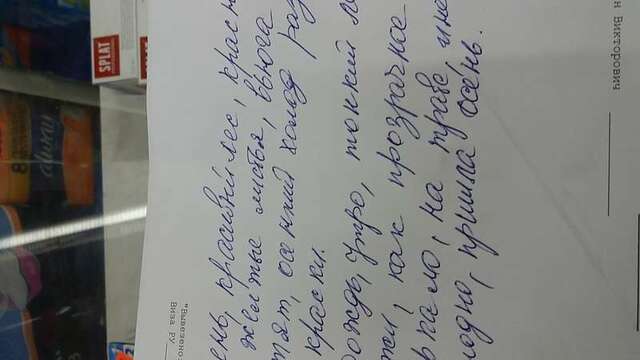 always
SPLAT
Виза РУ
"Вывезено
ень, красивый лес, красн
желтые листья, вьюга
тят, осенний холод раз
краски.
дождь, утро, тонкий л
жи, как прозрачное
ркало, на траве, ине
лодно, пришла осень.
н Викторович